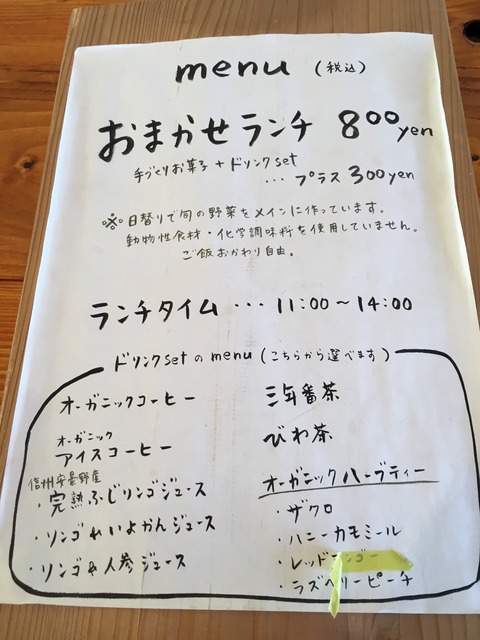 menu (税込)
おまかせランチ 800yen
手づくりお菓子 + ドリンクset
... プラス 300yen
※ 日替りで旬の野菜をメインに作っています。
動物性食材・化学調味料を使用していません。
ご飯おかわり自由。
ランチタイム ... 11:00〜14:00
ドリンクsetのmenu (こちらから選べます)
オーガニックコーヒー
オーガニック
アイスコーヒー
信州安曇野産
・完熟ふじリンゴジュース
・リンゴ&いよかんジュース
・リンゴ&人参ジュース
三年番茶
びわ茶
オーガニックハーブティー
・ザクロ
・ハニーカモミール
・レッド
・ラズベリーピーチ